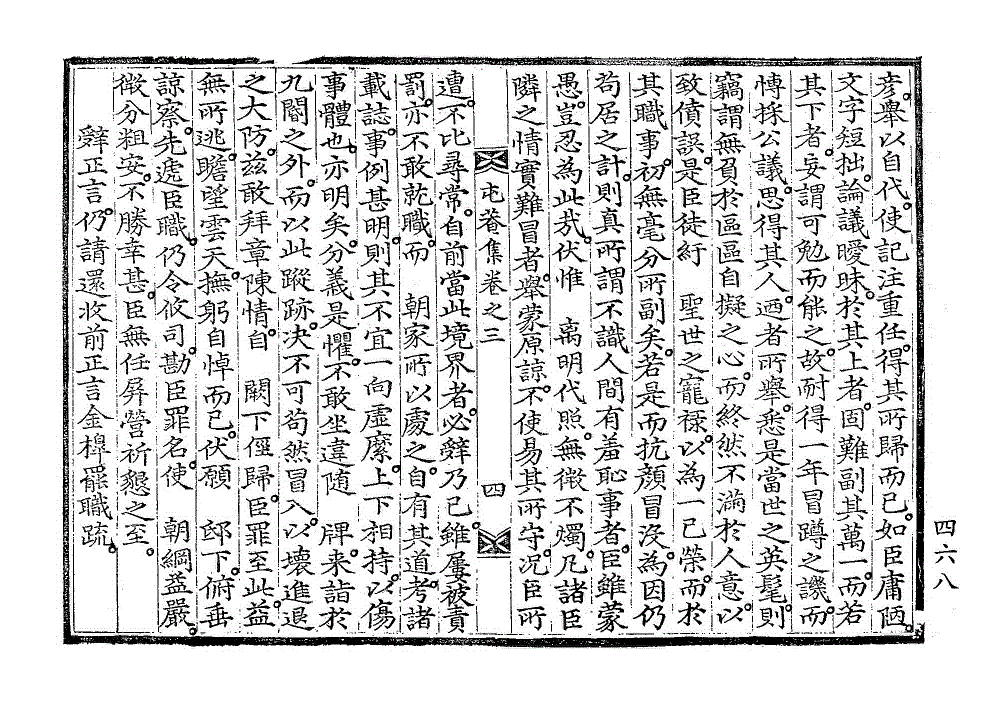 彦擧以自代。使記注重任。得其所歸而已。如臣庸陋。
文字短拙。論議曖昧。於其上者。固難副其萬一。而若
其下者。妄謂可勉而能之。故耐得一年冒蹲之譏。而
博採公議。思得其人。廼者所擧。悉是當世之英髦。則
竊謂無負於區區自擬之心。而終然不滿於人意。以
致僨誤。是臣徒紆 聖世之寵祿。以爲一己榮。而於
其職事。初無毫分所副矣。若是而抗顔冒沒。爲因仍
苟居之計。則眞所謂不識人間有羞恥事者。臣雖蒙
愚。豈忍爲此㢤。伏惟 离明代照。無微不燭。凡諸臣
隣之情實難冒者。擧蒙原諒。不使易其所守。况臣所
屯菴集卷之三
四
遭。不比尋常。自前當此境界者。必辭乃已。雖屢被責
罰。亦不敢就職。而 朝家所以處之。自有其道。考諸
載誌。事例甚明。則其不宜一向虛縻。上下相持。以傷
事體也。亦明矣。分義是懼。不敢坐違隨 牌。來詣於
九閽之外。而以此蹤跡。决不可苟然冒入。以壞進退
之大防。玆敢拜章陳情。自 闕下徑歸。臣罪至此。益
無所逃。瞻望雲天。撫躬自悼而已。伏願 邸下。俯垂
諒察。先遞臣職。仍令攸司勘臣罪名。使 朝綱益嚴。
微分粗安。不勝幸甚。臣無任屛營祈懇之至。
辭正言。仍請還收前正言金橰罷職疏。
四六八